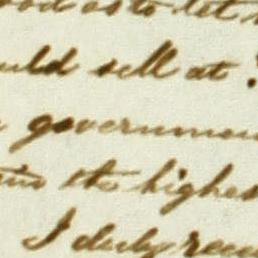 ood as to let
uld sell at
government
the highes
I duly rece